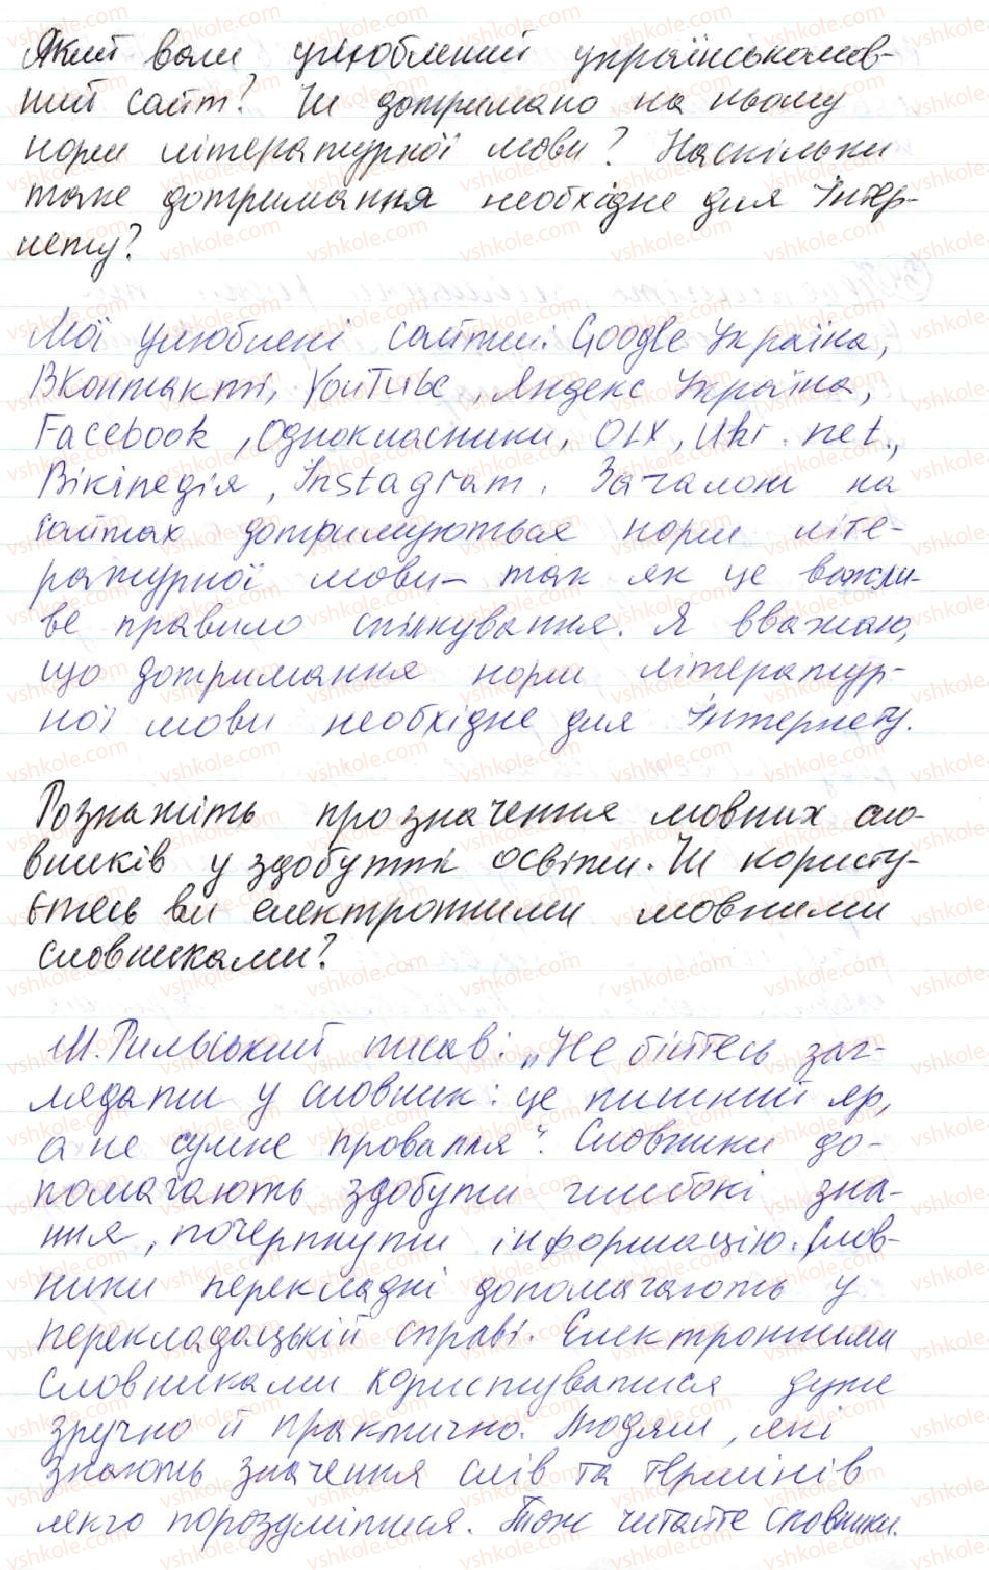 Який вали улюблений українськомов-
ний сайт? Чи дотримано на ньому
норм літературної мови? Наскільки
таке дотримання необхідне для Інтер-
нету?
Мої улюблені сайти: Google Україна,
ВКонтакті, YouTube, Яндекс Україна,
Facebook, Однокласники, OLX, Ukr.net.,
Вікіпедія, Instagram. Загалом на
сайтах дотримуються норм літе-
ратурної мови – так як це важли-
ве правило спілкування. Я вважаю,
що дотримання норм літератур-
ної мови необхідне для Інтернету.
Розкажіть про значення мовних сло-
вників у здобутті освіти. Чи користу-
єтесь ви електронними мовними
словниками?
М. Рильський писав: „Не бійтесь заг-
лядати у словник: це пишний яр,
а не сумне провалля“. Словники до-
помагають здобути глибокі зна-
ння, почерпнути інформацію. Слов-
ники перекладні допомагають у
перекладацькій справі. Електронними
словниками користуватися дуже
зручно й практично. Людям, які
знають значення слів та термінів
легко порозумітися. Тож читайте словники.
vshkole.com